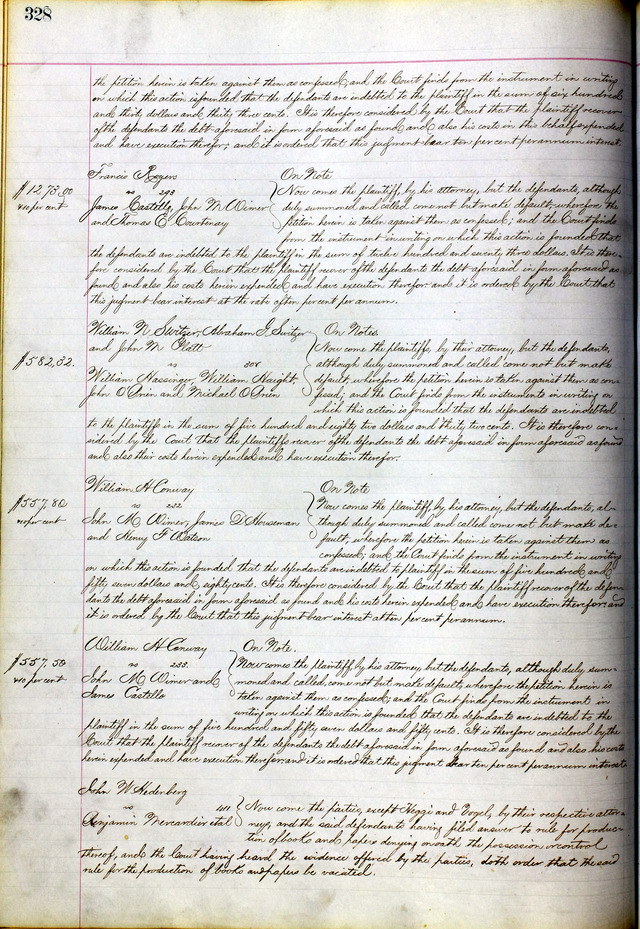 328
the petition herein is taken against them as confessed, and the Court finds from the instrument in writing
on which this action is founded that the defendants are indebted to the plaintiff in the sum of six hundred
and thirty dollars and thirty three cents. It is therefore considered by the Court that the plaintiff recover
of the defendants the debt aforesaid in form aforesaid as found and also his costs in this behalf expended
and have execution therefor; and it is ordered that this judgment bear ten per cent per annum interest.
Francis Rogers On Note
$1273,00 vs 293 Now comes the plaintiff, by his attorney, but the defendants, although
10 per cent James Castello, John M Wimer duly summoned and called come not but make default; wherefore the
and Thomas E Courtenay petition herein is taken against them as confessed; and the Court finds
from the instrument in writing on which this action is founded that
the defendants are indebted to the plaintiff in the sum of twelve hundred and seventy three dollars. It is there-
fore considered by the Court that the plaintiff recover of the defendants the debt aforesaid in form aforesaid as
found and also his costs herein expended and have execution therefor and it is ordered by the Court that
this judgment bear interest at the rate of ten per cent per annum.
William N Switzer, Abraham J Switzer On Notes
and John M Platt Now come the plaintiffs, by their attorney, but the defendants,
$582,32. vs although duly summoned and called come not but make
William Hassinger, William Haight, default, wherefore the petition herein is taken against them as con-
John O'Brien and Michael O'Brien fessed; and the Court finds from the instruments in writing on
which this action is founded that the defendants are indebted
to the plaintiffs in the sum of five hundred and eighty two dollars and thirty two cents. It is therefore con-
sidered by the Court that the plaintiffs recover of the defendants the debt aforesaid in form aforesaid as found
and also their costs herein expended and have execution therefor.
William H Conway On Note
$557,80 vs 252 Now comes the plaintiff, by his attorney, but the defendants, al-
10 per cent John M Wimer, James D Houseman though duly summoned and called come not but make de-
and Henry F Watson fault; wherefore the petition herein is taken against them as
confessed; and the Court finds from the instrument in writing
on which this action is founded that the defendants are indebted to plaintiff in the sum of five hundred and
fifty seven dollars and eighty cents. It is therefore considered by the Court that the plaintiff recover of the defen-
dants the debt aforesaid in form aforesaid as found and his costs herein expended and have execution therefor; and
it is ordered by the Court that this judgment bear interest at ten per cent per annum.
William H Conway On Note.
$557,50 vs 255. Now comes the plaintiff, by his attorney, but the defendants, although duly sum-
10 per cent John M Wimer and moned and called, come not but make default; wherefore the petition herein is
James Castello taken against them as confessed; and the Court finds from the instrument in
writing on which this action is founded that the defendants are indebted to the
plaintiff in the sum of five hundred and fifty seven dollars and fifty cents. It is therefore considered by the
Court that the plaintiff recover of the defendants the debt aforesaid in form aforesaid as found and also his costs
herein expended and have execution therefor and it is ordered that this judgment bear ten per cent per annum interest
John W Hedenberg
vs 411 Now come the parties, except Heggi and Vogel, by their respective attor-
Benjamin Mercardier et al neys, and the said defendants having filed answer to rule for produc-
tion of books and papers denying on oath the possession or control
thereof, and the Court having heard the evidence offered by the parties, doth order that the said
rule for the production of books and papers be vacated.